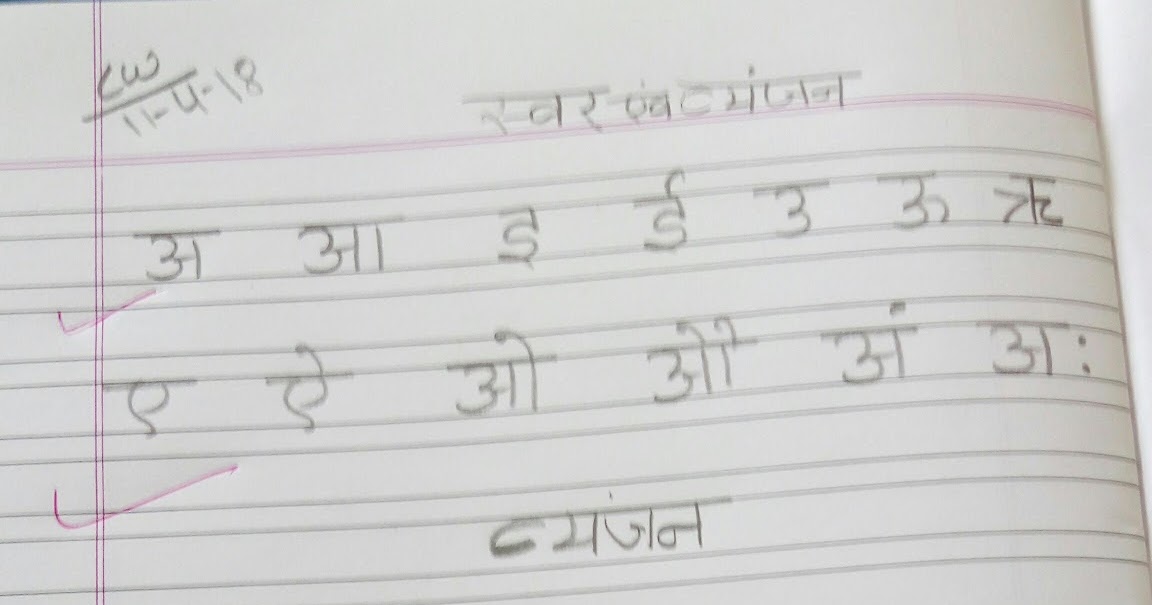 CW
11-4-18
स्वर एवं व्यंजन
अ आ इ ई उ ऊ ऋ
ए ऐ ओ औ अं अः
व्यंजन